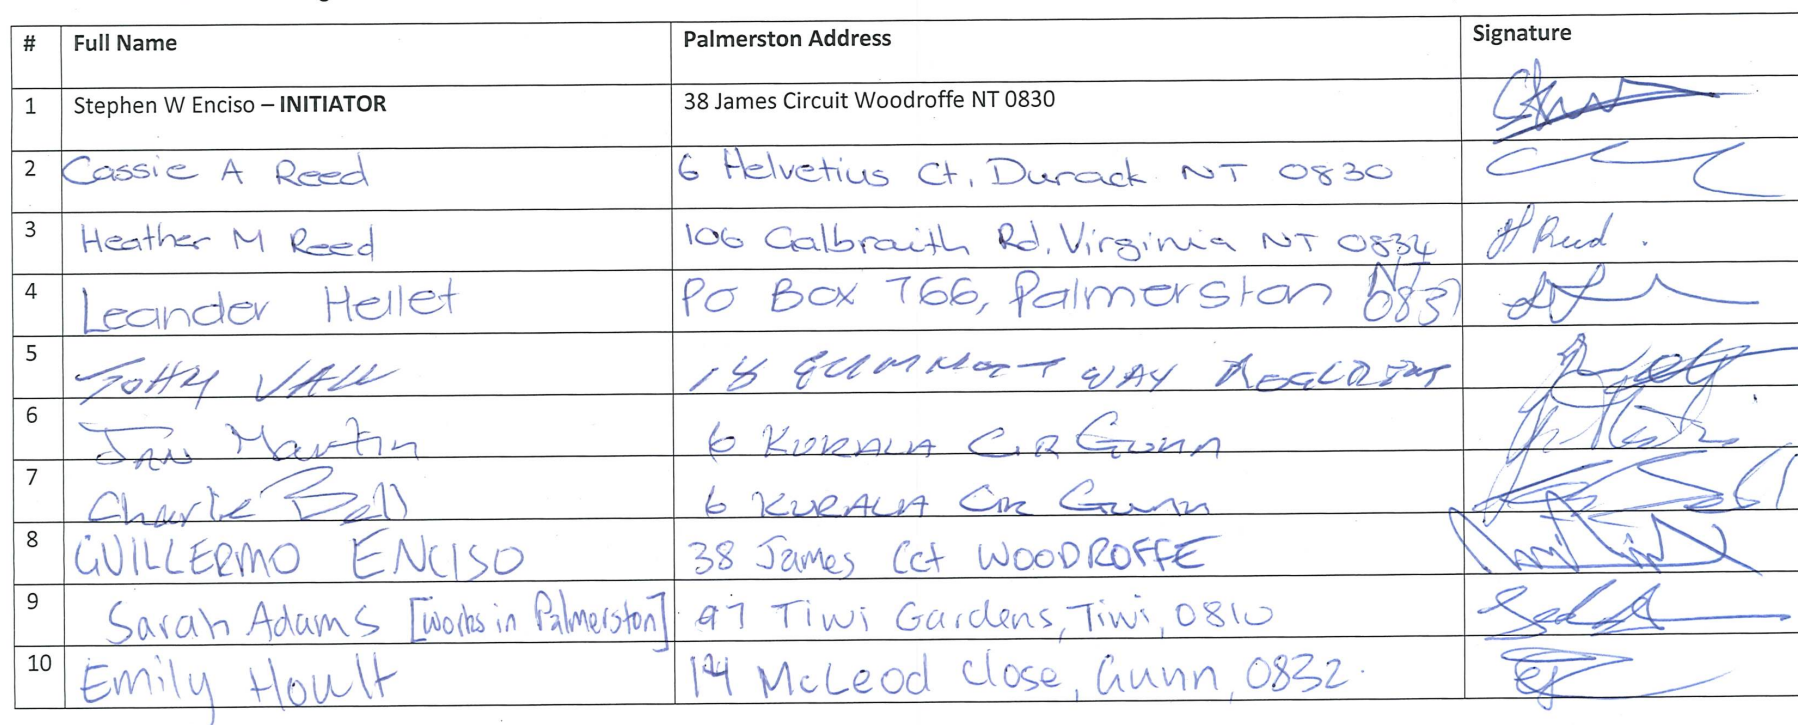 # Full Name Palmerston Address Signature
1 Stephen W Enciso – INITIATOR 38 James Circuit Woodroffe NT 0830
2 Cassie A Reed 6 Helvetius Ct, Durack NT 0830
3 Heather M Reed 106 Galbraith Rd, Virginia NT 0834 H Reed.
4 Leander Hellet PO Box 766, Palmerston NT 0831
5 18 WAY
6 Jan Martin 6 KURALA CIR Gunn
7 Charlie Bell 6 KURALA CIR Gunn
8 GUILLERMO ENCISO 38 James Cct WOODROFFE
9 Sarah Adams [works in Palmerston] 97 Tiwi Gardens, Tiwi, 0810
10 Emily Hoult 14 McLeod Close, Gunn, 0832.